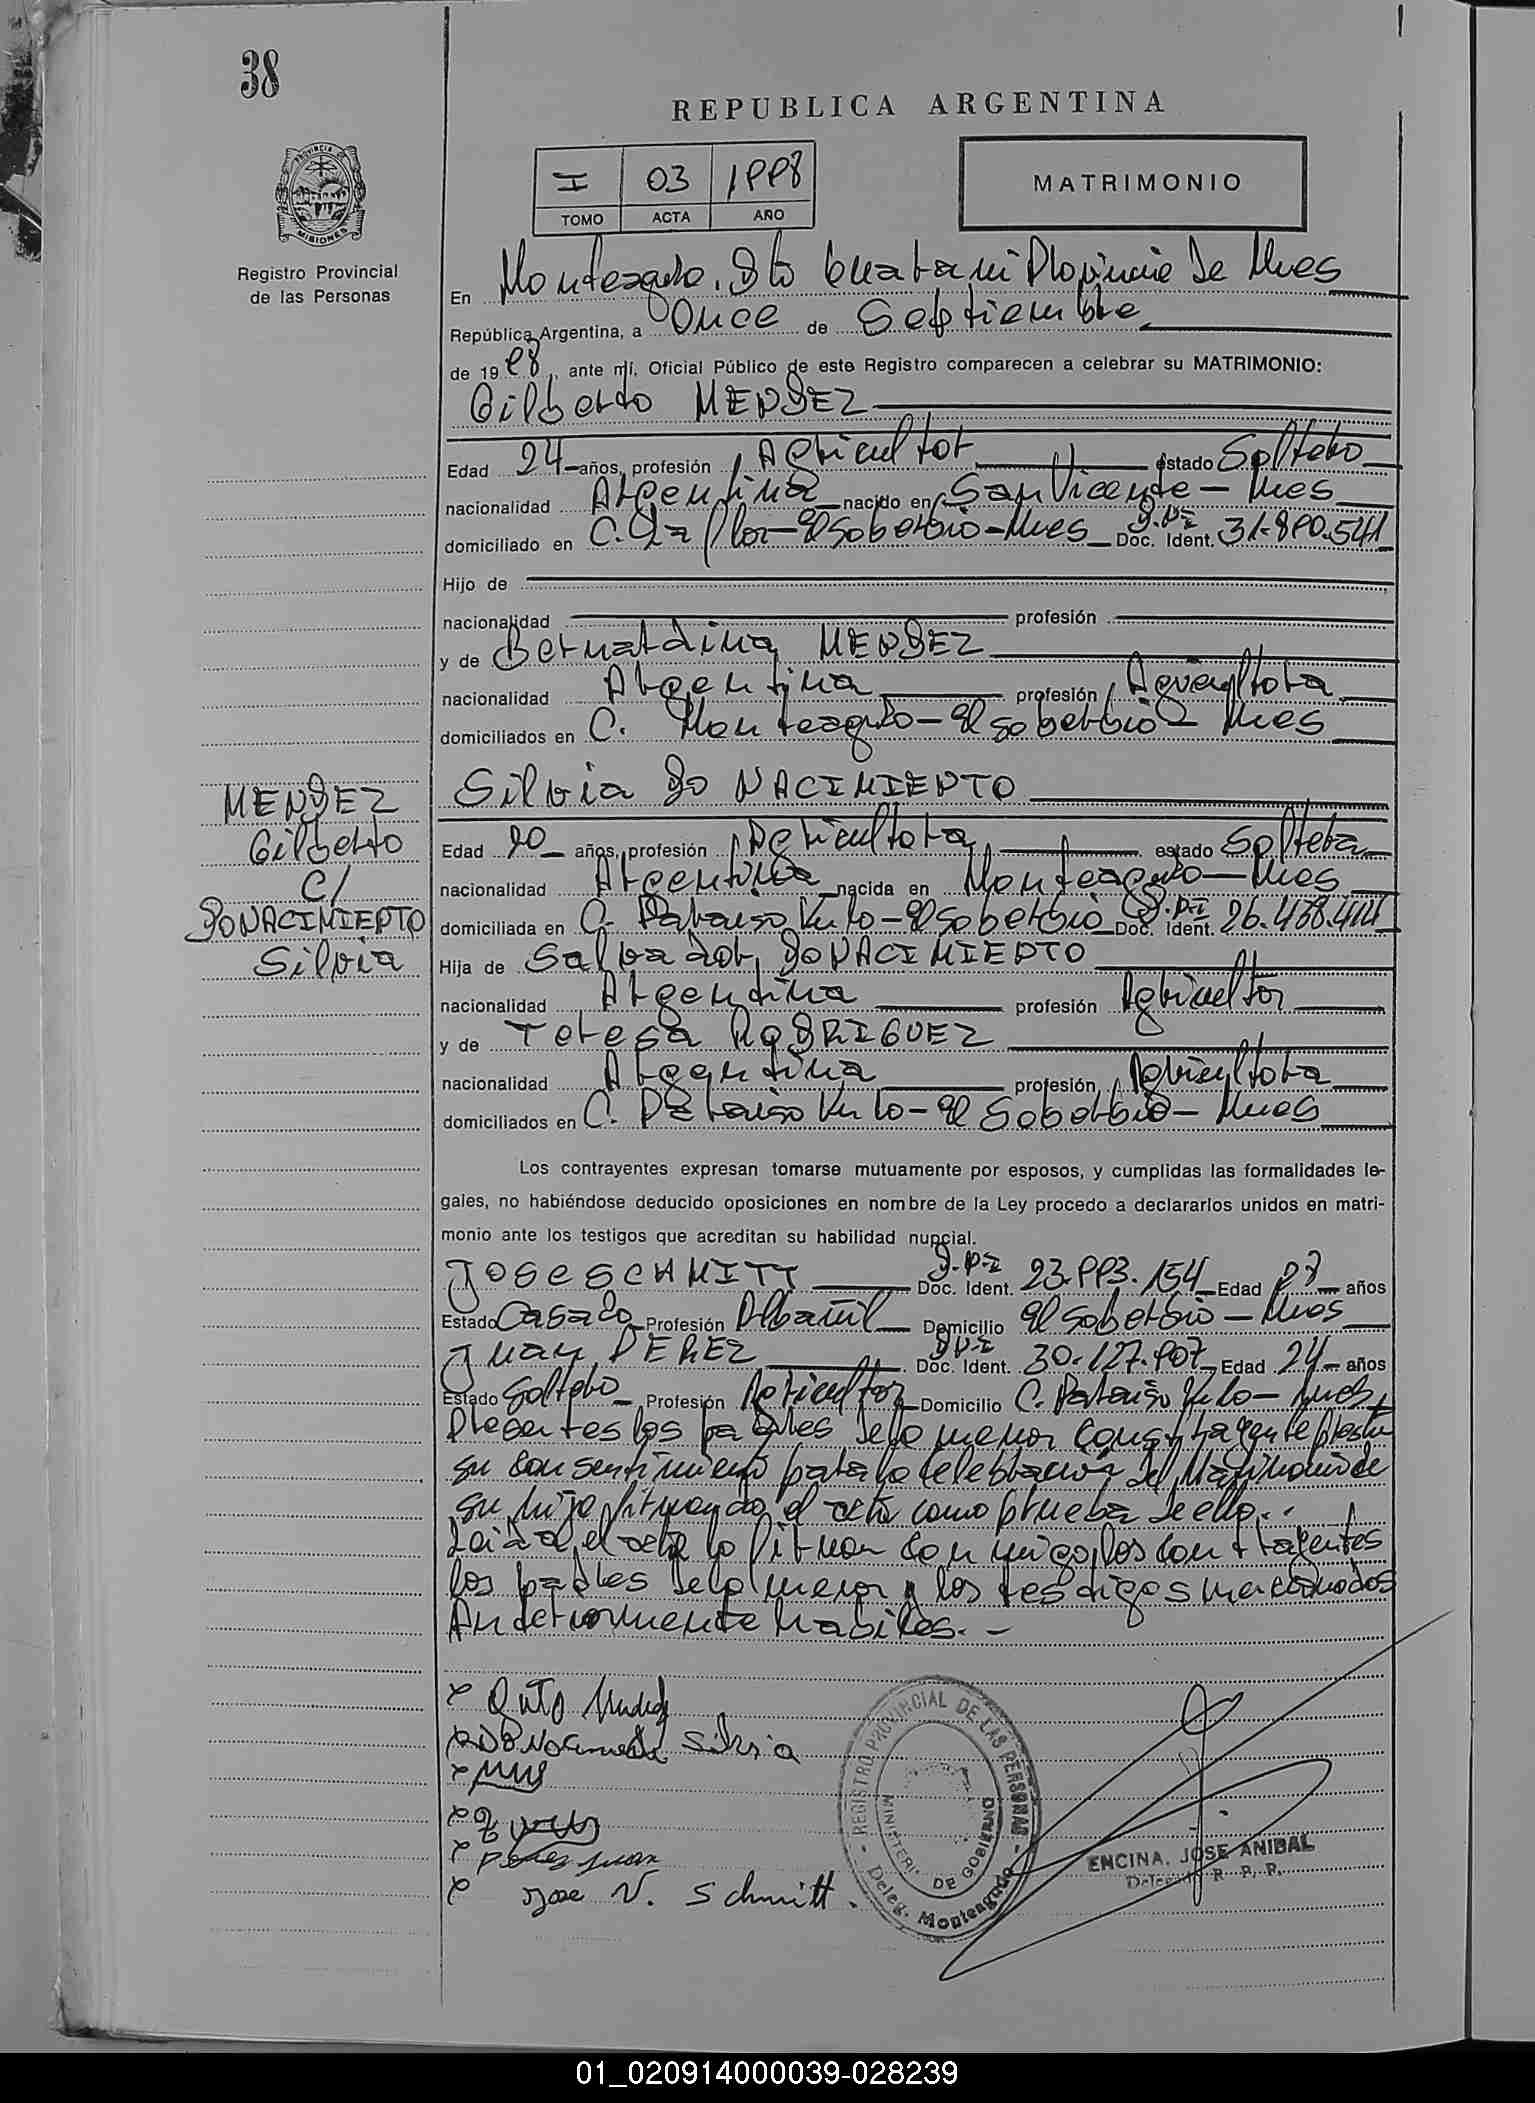 38
REPUBLICA ARGENTINA
I 03 1998
TOMO ACTA AÑO
MATRIMONIO
PROVINCIA DE
MISIONES
Registro Provincial
de las Personas
En Monteagudo. Dto Guarani Provincia de Mnes
República Argentina, a Once de Septiembre
de 19 98, ante mí, Oficial Público de este Registro comparecen a celebrar su MATRIMONIO:
Gilberto MENDEZ
Edad 24 años, profesión Agricultor estado Soltero
nacionalidad Argentina nacido en San Vicente - Mnes
domiciliado en C. La Flor - El Soberbio - Mnes D.N.I Doc. Ident. 31.890.541
Hijo de
nacionalidad profesión
y de Bernardina MENDEZ
nacionalidad Argentina profesión Agricultora
domiciliados en C. Monteagudo - El Soberbio - Mnes
Silvia DO NACIMIENTO
Edad años, profesión Agricultora estado Soltera
nacionalidad Argentina nacida en Monteagudo - Mnes
domiciliada en C. Paraiso - El Soberbio D.N.I Doc. Ident. 26.468.414
Hija de Salvador DO NACIMIENTO
nacionalidad Argentina profesión Agricultor
y de Teresa RODRIGUEZ
nacionalidad Argentina profesión Agricultora
domiciliados en C. Paraiso - El Soberbio - Mnes
MENDEZ
Gilberto
C/
DO NACIMIENTO
Silvia
Los contrayentes expresan tomarse mutuamente por esposos, y cumplidas las formalidades le-
gales, no habiéndose deducido oposiciones en nombre de la Ley procedo a declararlos unidos en matri-
monio ante los testigos que acreditan su habilidad nupcial.
JOSE SCHMITT D.N.I Doc. Ident. 23.993.154 Edad 27 años
Estado Casado Profesión Albañil Domicilio El Soberbio - Mnes
Juan PEREZ D.N.I Doc. Ident. 30.127.907 Edad 24 años
Estado Soltero Profesión Agricultor Domicilio C. Paraiso - Mnes
Presentes los padres de la menor contrayente prestan
su consentimiento para la celebración del Matrimonio de
su hija firmando el acta como prueba de ello.
Leida el acta lo firman conmigo, los contrayentes
los padres de la menor y los testigos mencionados
Anteriormente habiles. -
x
x Do Nacimento Silvia
x
x
x Perez Juan
x Jose N. Schmitt.
REGISTRO PROVINCIAL DE LAS PERSONAS
MINISTERI DE GOBIERNO
Deleg. Monteagudo
ENCINA, JOSE ANIBAL
R. P. P.
01_020914000039-028239